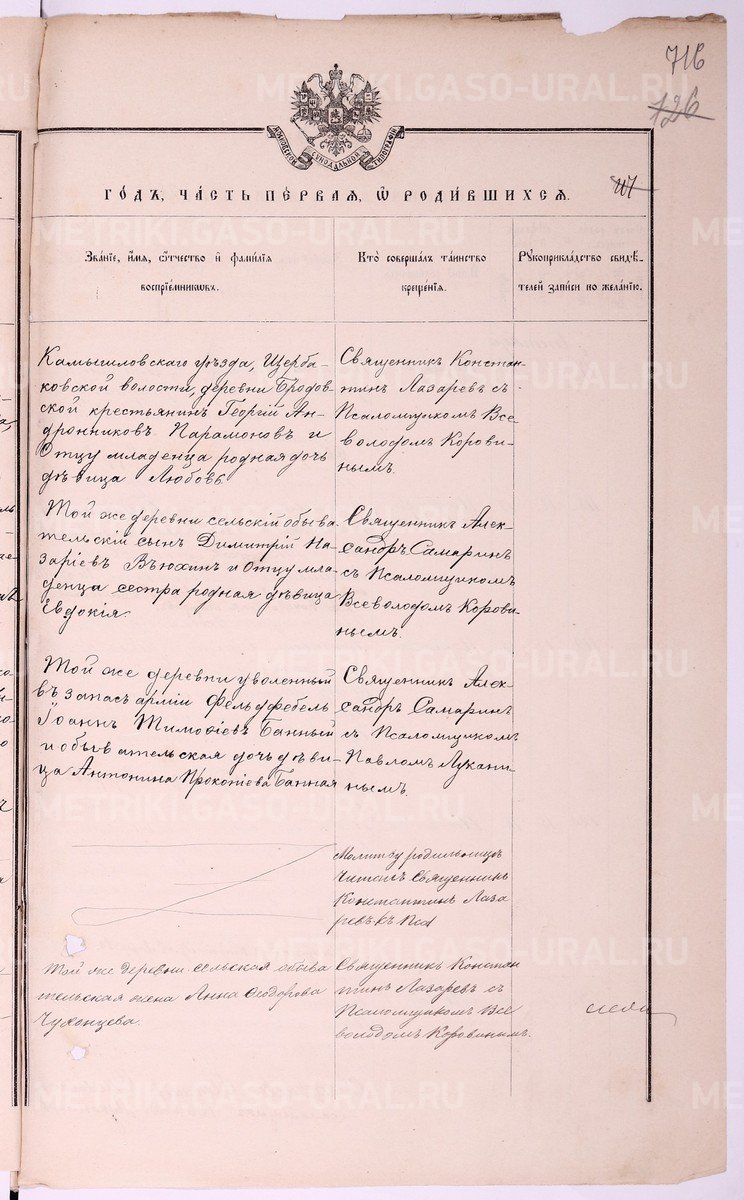 716
126
117
МОСКОВСКОЙ СУНОДАЛЬНОЙ ТИПОГРАФІИ
ГО́ДЪ, ЧА́СТЬ ПЕ́РВАЯ, Ѡ҆ РОДИ́ВШИХСЯ.
Зва́ніе, и҆́мя, ѻ҆́тчество и҆ фами́лія
воспріе́мниковъ.
Кто̀ соверша́лъ та́инство
креще́нія.
Рꙋкоприкла́дство свидѣ́-
телей за́писи по жела́нію.
Камышловскаго уѣзда, Щерба-
ковской волости, деревни Бродов-
ской крестьянинъ Георгій Ан-
дронниковъ Парамоновъ и
Отцу младенца родная дочь
дѣвица Любовь.
Священникъ Констан-
тинъ Лазаревъ съ
Псаломщикомъ Все-
володомъ Корови-
нымъ.
Той же деревни сельскій обыва-
тельскій сынъ Димитрій На-
заріевъ Вьюхинъ и Отцу мла-
денца сестра родная дѣвица
Евдокія.
Священникъ Алек-
сандръ Самаринъ
съ Псаломщикомъ
Всеволодомъ Корови-
нымъ.
Той же деревни уволенный
въ запасъ арміи Фельдфебель
Іоаннъ Тимофіевъ Банный
и обывательская дочь дѣви-
ца Антонина Прокопіева Банная
Священникъ Алек-
сандръ Самаринъ
съ Псаломщикомъ
Павломъ Лукани-
нымъ.
Молитву родильницѣ
читалъ Священникъ
Константинъ Лаза-
ревъ
Той же деревни сельская обыва-
тельская жена Анна Ѳеодорова
Чухонцева.
Священникъ Констан-
тинъ Лазаревъ съ
Псаломщикомъ Все-
володомъ Коровинымъ.
METRIKI.GASO-URAL.RU